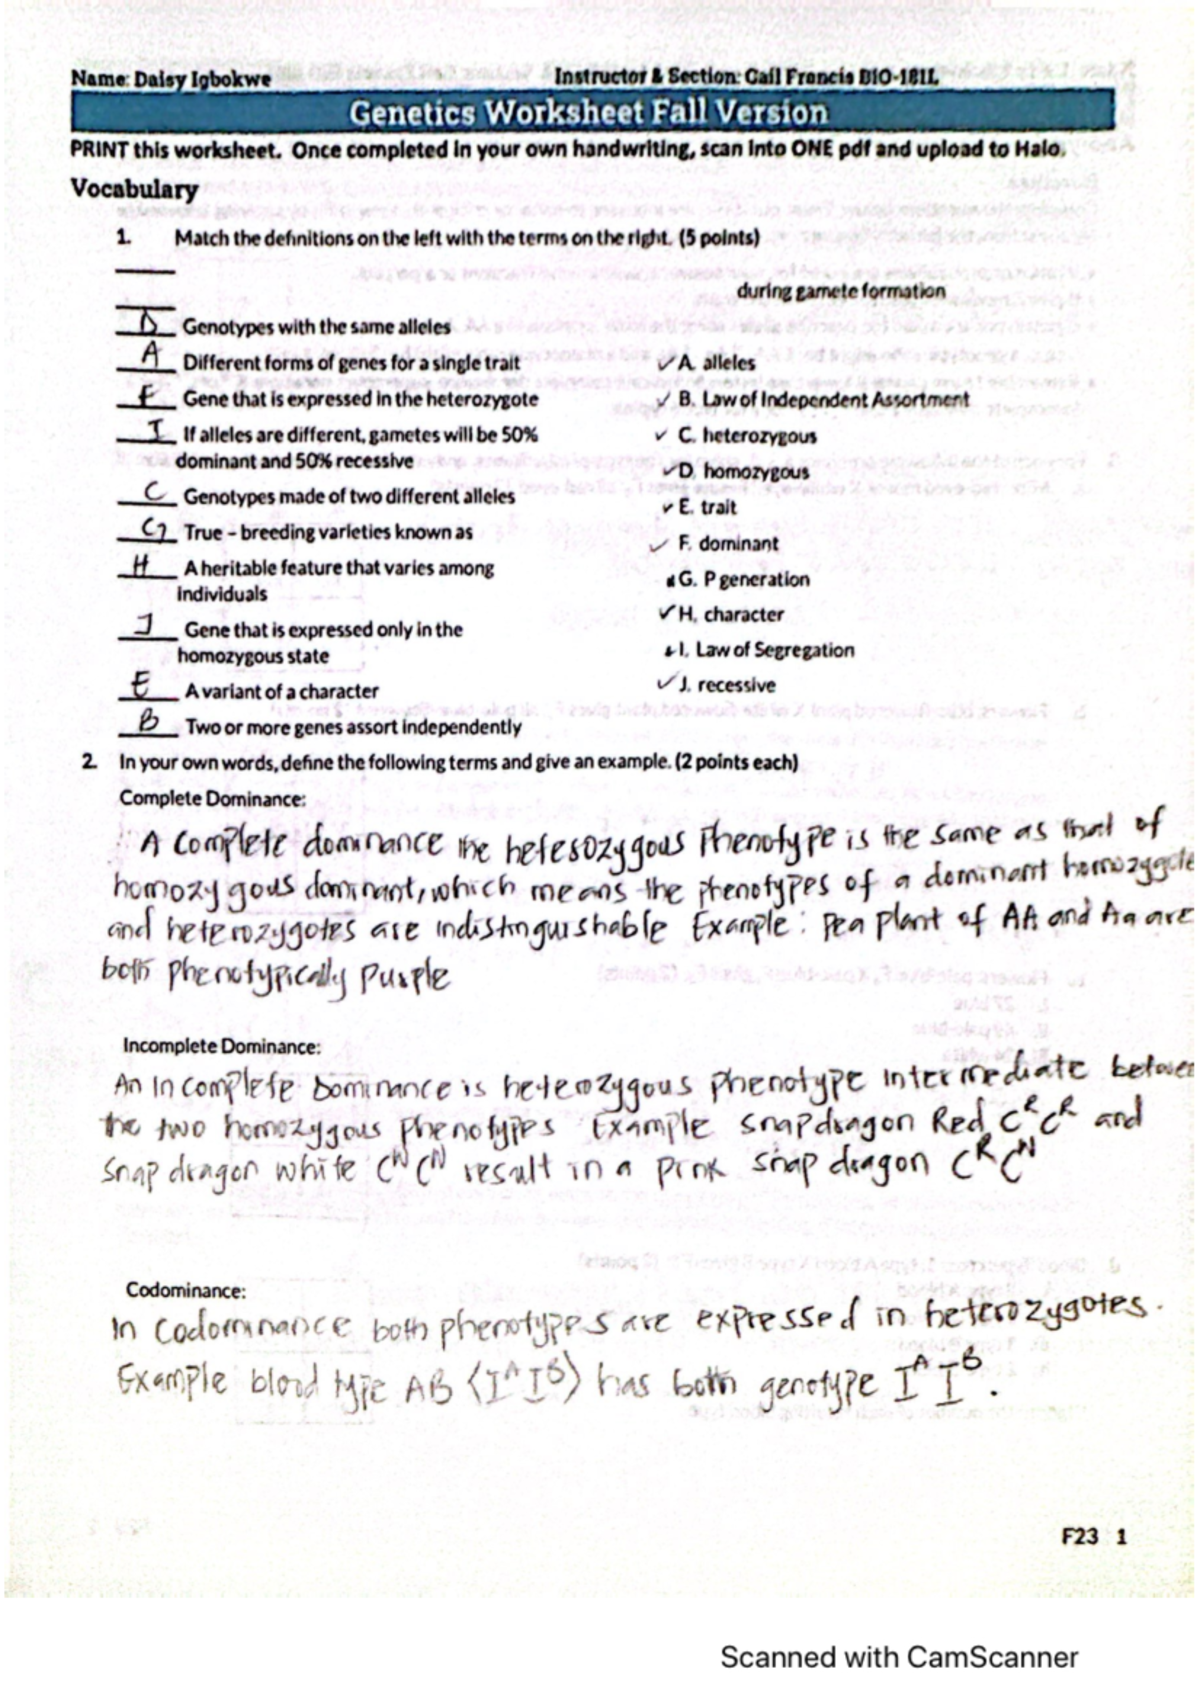 Name: Daisy Igbokwe Instructor & Section: Cail Francis BIO-181L
Genetics Worksheet Fall Version
PRINT this worksheet. Once completed in your own handwriting, scan into ONE pdf and upload to Halo.
Vocabulary
1. Match the definitions on the left with the terms on the right. (5 points)
during gamete formation
D Genotypes with the same alleles
A Different forms of genes for a single trait
F Gene that is expressed in the heterozygote
I If alleles are different, gametes will be 50%
dominant and 50% recessive
C Genotypes made of two different alleles
G True – breeding varieties known as
H A heritable feature that varies among
individuals
J Gene that is expressed only in the
homozygous state
E A variant of a character
B Two or more genes assort independently
✓ A. alleles
✓ B. Law of Independent Assortment
✓ C. heterozygous
✓ D. homozygous
✓ E. trait
✓ F. dominant
G. P generation
✓ H. character
I. Law of Segregation
✓ J. recessive
2. In your own words, define the following terms and give an example. (2 points each)
Complete Dominance:
A Complete dominance the heterozygous Phenotype is the same as that of
homozygous dominant, which means the phenotypes of a dominant homozygote
and heterozygotes are indistinguishable Example: Pea plant of AA and Aa are
both phenotypically Purple
Incomplete Dominance:
An Incomplete Dominance is heterozygous phenotype intermediate between
the two homozygous phenotypes Example snapdragon Red CᴿCᴿ and
Snap dragon white CᵂCᵂ result in a pink snap dragon CᴿCᵂ
Codominance:
In Codominance both phenotypes are expressed in heterozygotes.
Example blood type AB (IᴬIᴮ) has both genotype IᴬIᴮ.
F23 1
Scanned with CamScanner